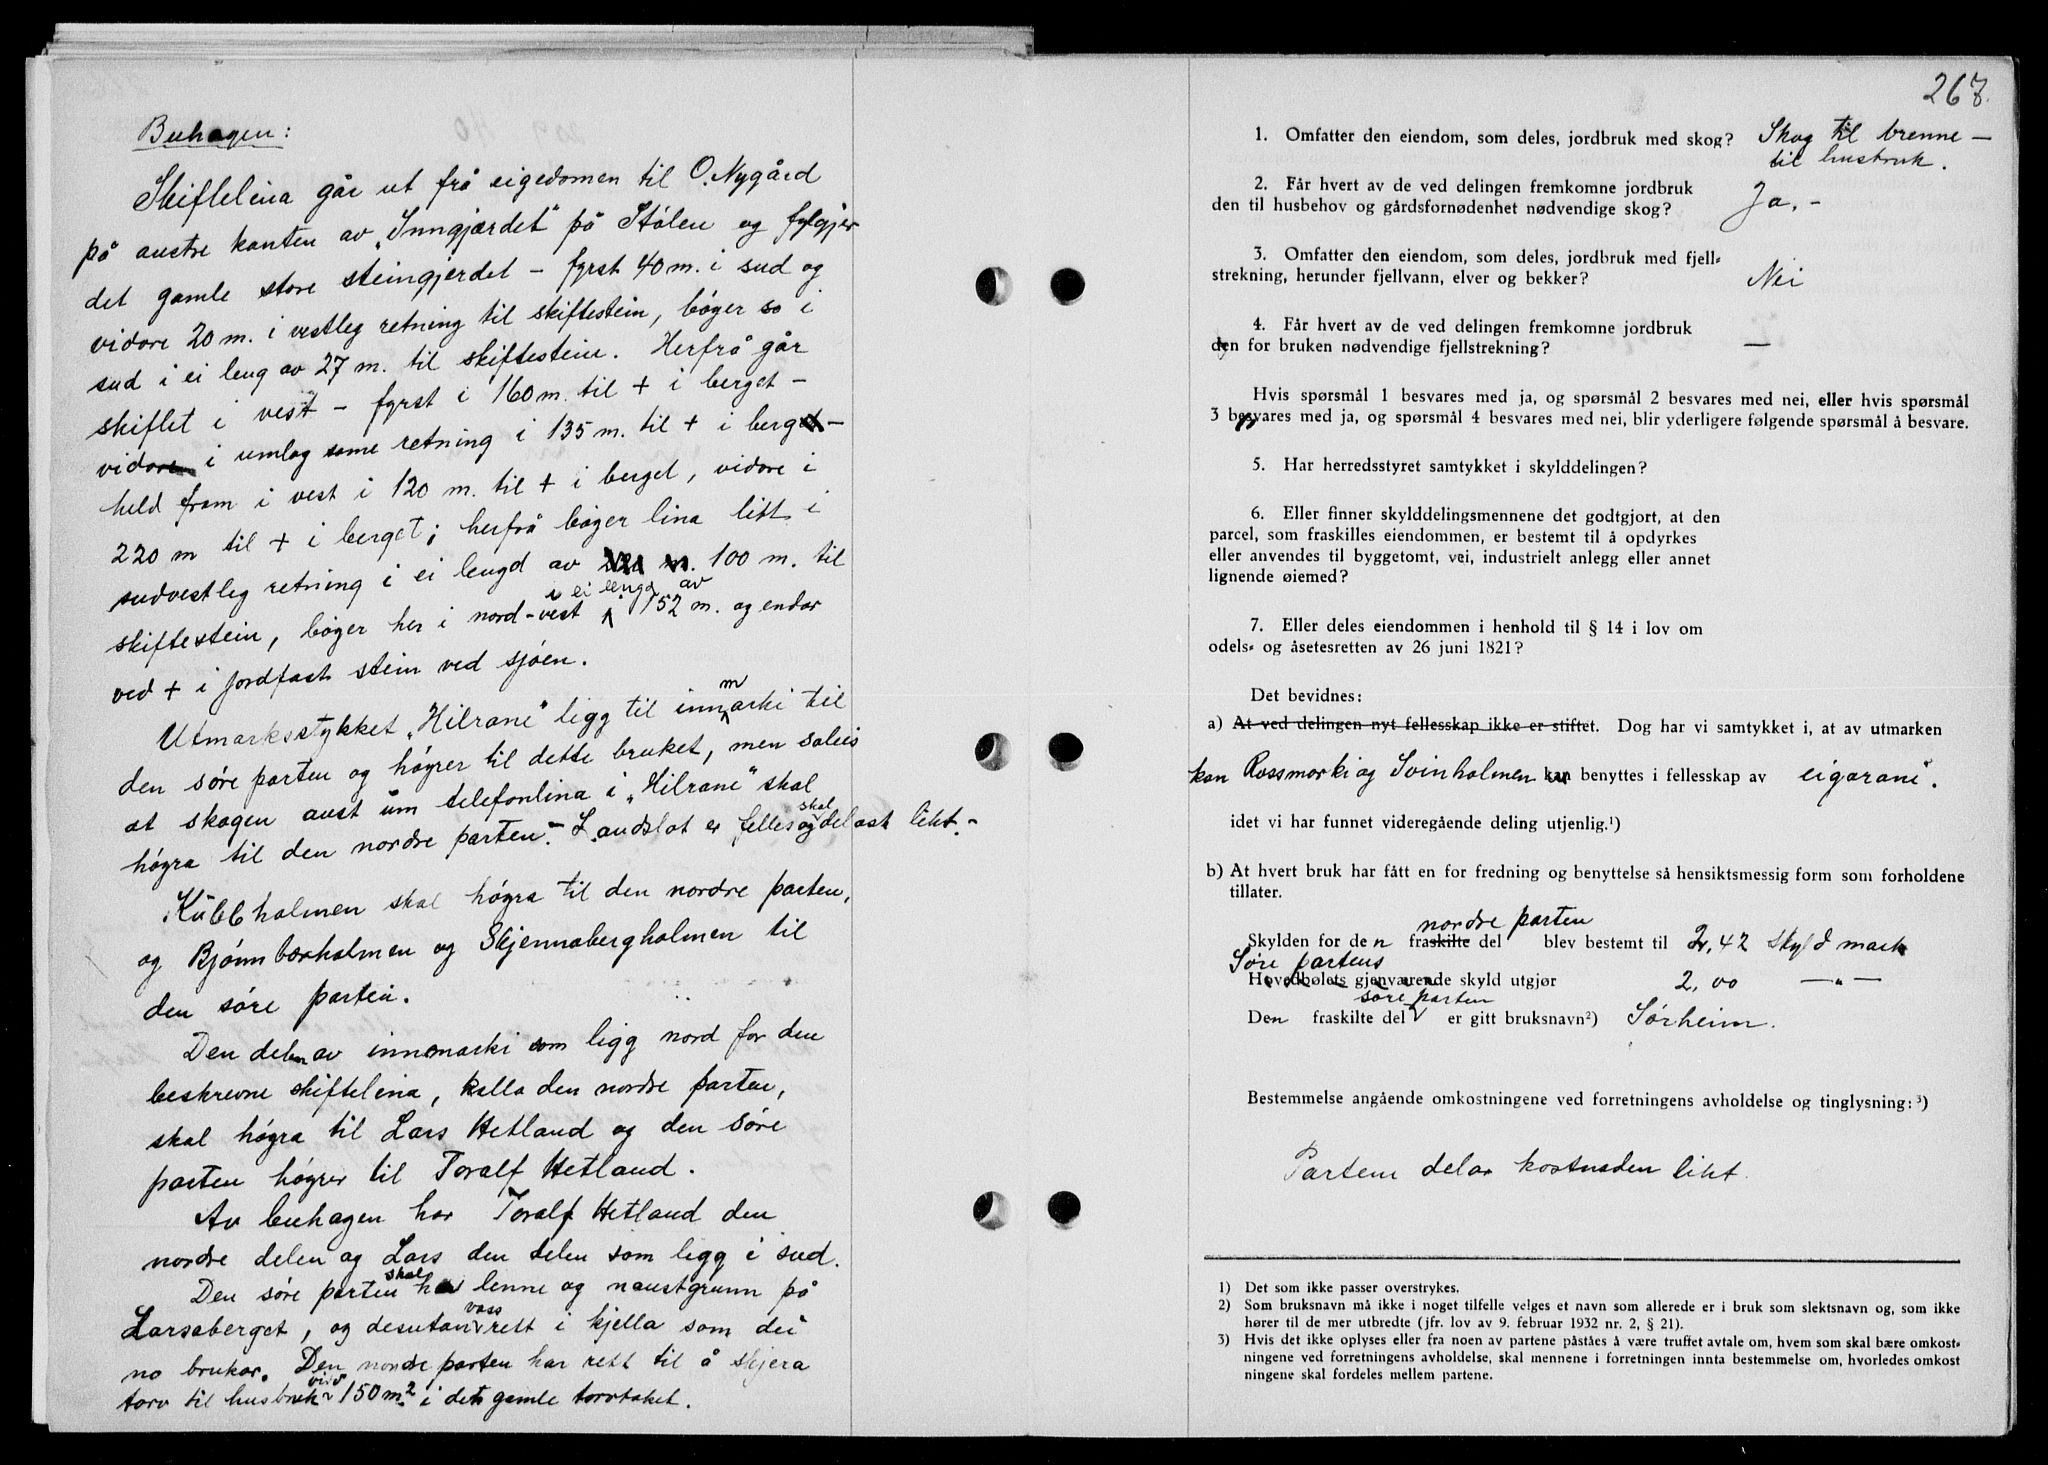 Buhagen:
Skiftelina går ut frå eigedomen til O. Nygård
på austre kanten av "Inngjærdet" på Stölen og fylgjer
det gamle store steingjerdet – fyrst 40 m. i sud og
vidare 20 m. i vestleg retning til skiftestein, böger so i
sud i ei leng av 27 m. til skiftestein. Herfrå går
skiftet i vest – fyrst i 160 m. til + i berget –
vidare i umlag same retning i 135 m. til + i berget –
held fram i vest i 120 m. til + i berget, vidare i
220 m til + i berget; herfrå böger lina litt i
sudvestleg retning i ei lengd av 100 m. til
skiftestein, böger her i nord-vest i ei lengd av 152 m. og endar
ved + i jordfast stein ved sjöen.
Utmarksstykket "Hilrane" ligg til innmarki til
den söre parten og högrer til dette bruket, men soleis
at skogen aust um telefonlina i "Hilrane" skal
högra til den nordre parten. – Landslot er felles og skal delast likt. –
Kubbholmen skal högra til den nordre parten,
og Björnbærholmen og Skjennabergholmen til
den söre parten.
Den delen av innmarki som ligg nord for den
beskrevne skiftelina, kalla den nordre parten,
skal högra til Lars Hetland og den söre
parten högrer til Toralf Hetland.
Av buhagen har Toralf Hetland den
nordre delen og Lars den delen som ligg i sud.
Den söre parten skal ha lenne og naustgrunn på
Larsaberget, og desutan vassrett i kjella som dei
no brukar. Den nordre parten har rett til å skjera
torv til husbruk 150 m² i det gamle torvtaket.
267.
1. Omfatter den eiendom, som deles, jordbruk med skog? Skog til brenne –
til husbruk.
2. Får hvert av de ved delingen fremkomne jordbruk
den til husbehov og gårdsfornødenhet nødvendige skog? Ja. –
3. Omfatter den eiendom, som deles, jordbruk med fjell-
strekning, herunder fjellvann, elver og bekker? Nei
4. Får hvert av de ved delingen fremkomne jordbruk
den for bruken nødvendige fjellstrekning? —
Hvis spørsmål 1 besvares med ja, og spørsmål 2 besvares med nei, eller hvis spørsmål
3 besvares med ja, og spørsmål 4 besvares med nei, blir yderligere følgende spørsmål å besvare.
5. Har herredsstyret samtykket i skylddelingen?
6. Eller finner skylddelingsmennene det godtgjort, at den
parcel, som fraskilles eiendommen, er bestemt til å opdyrkes
eller anvendes til byggetomt, vei, industrielt anlegg eller annet
lignende øiemed?
7. Eller deles eiendommen i henhold til § 14 i lov om
odels- og åsetesretten av 26 juni 1821?
Det bevidnes:
a) At ved delingen nyt fellesskap ikke er stiftet. Dog har vi samtykket i, at av utmarken
kan Rossmarki og Svinholmen kan benyttes i fellesskap av eigarane.
idet vi har funnet videregående deling utjenlig.¹)
b) At hvert bruk har fått en for fredning og benyttelse så hensiktsmessig form som forholdene
tillater.
nordre parten
Skylden for den fraskilte del blev bestemt til 2,42 skyld mark
Söre partens
Hovedbølets gjenværende skyld utgjør 2,00 — " —
söre parten
Den fraskilte del er gitt bruksnavn²) Sörheim.
Bestemmelse angående omkostningene ved forretningens avholdelse og tinglysning:³)
Partene delar kostnaden likt.
1) Det som ikke passer overstrykes.
2) Som bruksnavn må ikke i noget tilfelle velges et navn som allerede er i bruk som slektsnavn og, som ikke
hører til de mer utbredte (jfr. lov av 9. februar 1932 nr. 2, § 21).
3) Hvis det ikke oplyses eller fra noen av partene påståes å være truffet avtale om, hvem som skal bære omkost-
ningene ved forretningens avholdelse, skal mennene i forretningen innta bestemmelse om, hvorledes omkost
ningene skal fordeles mellem partene.